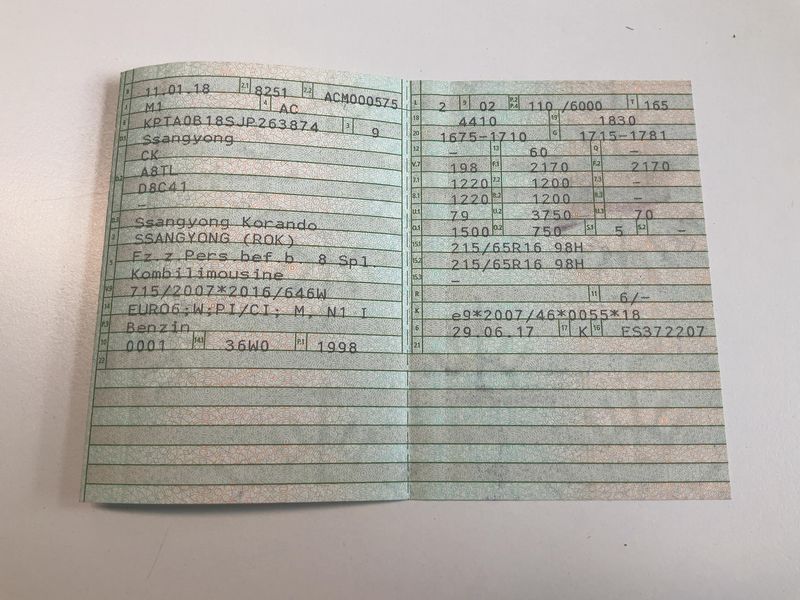 B 11.01.18 2.1 8251 2.2 ACM000575
J M1 4 AC
E KPTA0B18SJP263874 3 9
Ssangyong
CK
A8TL
D8C41
–
Ssangyong Korando
SSANGYONG (ROK)
Fz.z.Pers.bef.b. 8 Spl.
Kombilimousine
715/2007*2016/646W
EURO6;W;PI/CI; M, N1 I
Benzin
10 0001 14.1 36W0 P.1 1998
22
L 2 9 02 P.2 P.4 110 /6000 T 165
18 4410 19 1830
20 1675-1710 G 1715-1781
12 – 13 60 Q –
V.7 198 F.1 2170 F.2 2170
7.1 1220 7.2 1200 7.3 –
8.1 1220 8.2 1200 8.3 –
U.1 79 U.2 3750 U.3 70
O.1 1500 O.2 750 S.1 5 S.2 –
15.1 215/65R16 98H
15.2 215/65R16 98H
15.3 –
R 11 6/–
K e9*2007/46*0055*18
6 29.06.17 17 K 16 ES372207
21